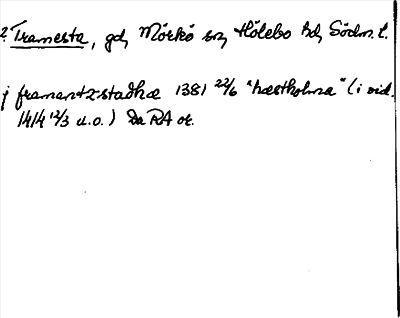 2. Tramesta, gd, Mörkö sn, Hölebo hd, Södm. l.
j framantzstadhæ 1381 22/6 "hæstholma" (i vid.
1414 12/3 u.o.) Da RA or.